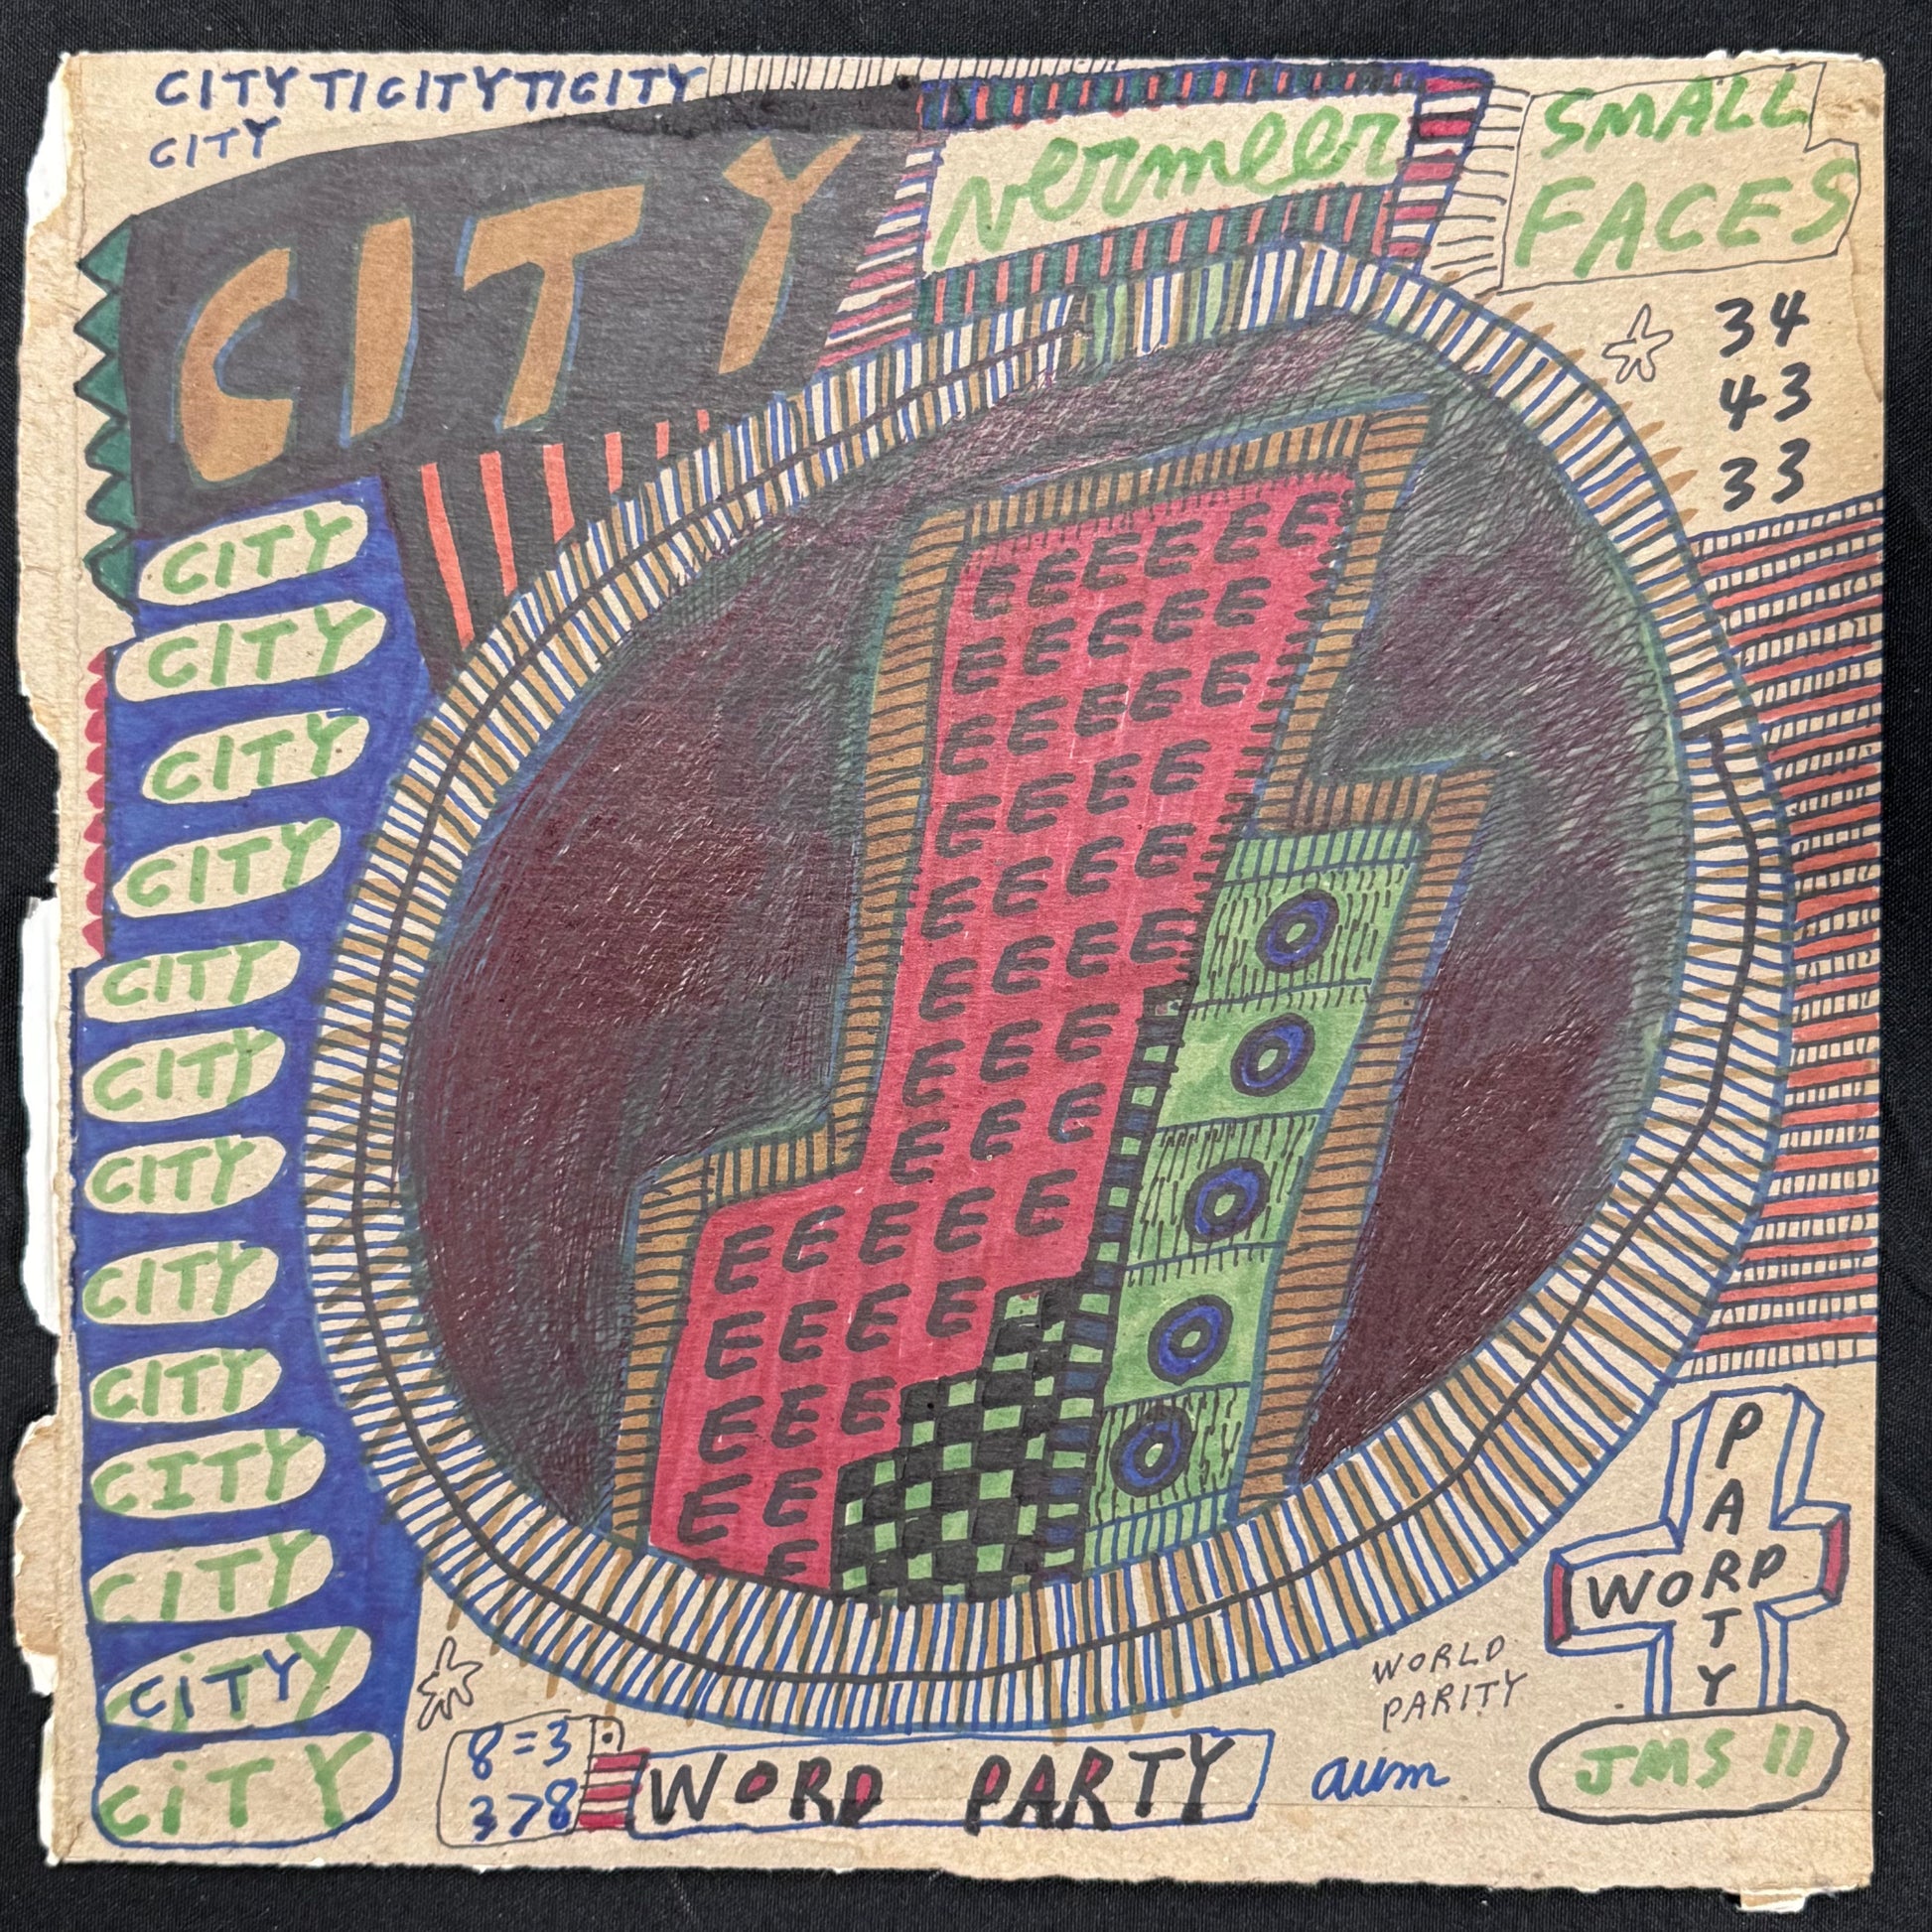 CITYTICITYTICITY
CITY
CITY
Vermeer
SMALL
FACES
34
43
33
CITY
CITY
CITY
CITY
CITY
CITY
CITY
CITY
CITY
CITY
CiTY
CITY
CiTY
EEEEEE
EEEEE
EEEEE
EEEE
EEEE
EEEE
EEE
EEE
EEEEE
EEEE
EEE
EE
EE
PARTY
WORD
WORLD
PARITY
8=3
3>8
WORD PARTY
aum
JMS 11